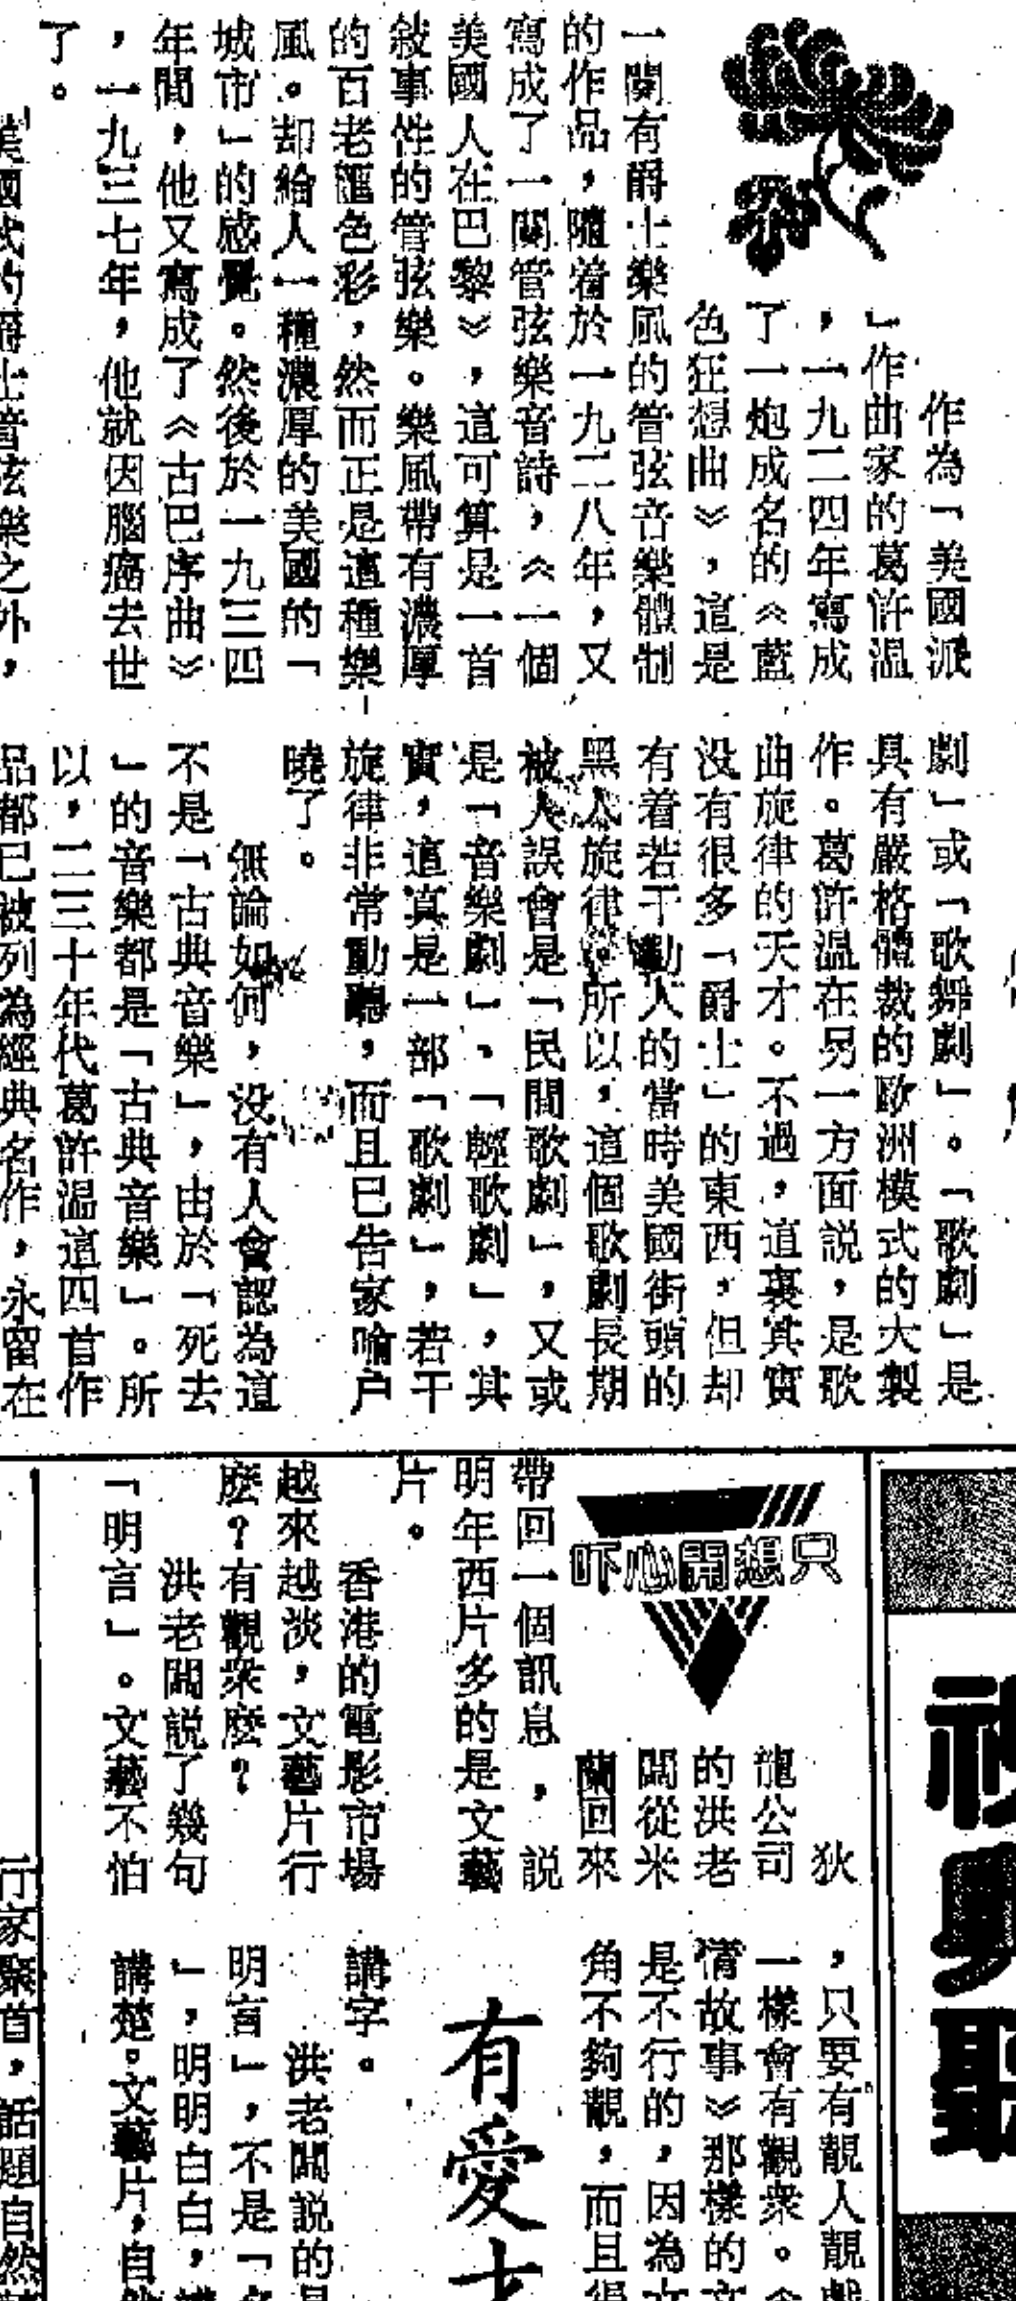 作為「美國派
」作曲家的葛許温
，一九二四年寫成
了一炮成名的《藍
色狂想曲》，這是
一闋有爵士樂風的管弦音樂體制
的作品，隨着於一九二八年，又
寫成了一闋管弦樂音詩，《一個
美國人在巴黎》，這可算是一首
敍事性的管弦樂。樂風帶有濃厚
的百老匯色彩，然而正是這種樂
風。却給人一種濃厚的美國的「
城市」的感覺。然後於一九三四
年間，他又寫成了《古巴序曲》
，一九三七年，他就因腦癌去世
了。
美國式的爵士管弦樂之外，
劇」或「歌舞劇」。「歌劇」是
具有嚴格體裁的歐洲模式的大製
作。葛許温在另一方面説，是歌
曲旋律的天才。不過，這裏其實
没有很多「爵士」的東西，但却
有着若干動人的當時美國街頭的
黑人旋律。所以，這個歌劇長期
被人誤會是「民間歌劇」，又或
是「音樂劇」、「輕歌劇」，其
實，這真是一部「歌劇」，若干
旋律非常動聽，而且已告家喻户
曉了。
無論如何，没有人會認為這
不是「古典音樂」，由於「死去
」的音樂都是「古典音樂」。所
以，二三十年代葛許温這四首作
品都已被列為經典名作，永留在
視與聽
只想開心吓
狄
龍公司
的洪老
闆從米
蘭回來
帶回一個訊息，説
明年西片多的是文藝
片。
香港的電影市場
越來越淡，文藝片行
麽？有觀衆麽？
洪老闆説了幾句
「明言」。文藝不怕
，只要有靚人靚戲
一樣會有觀衆。《
情故事》那樣的文
是不行的，因為文
角不夠靚，而且
有愛
講字。
洪老闆説的是
明言」，不是「
」，明明白白，講
講楚。文藝片，自然
行家聚首，話題自然